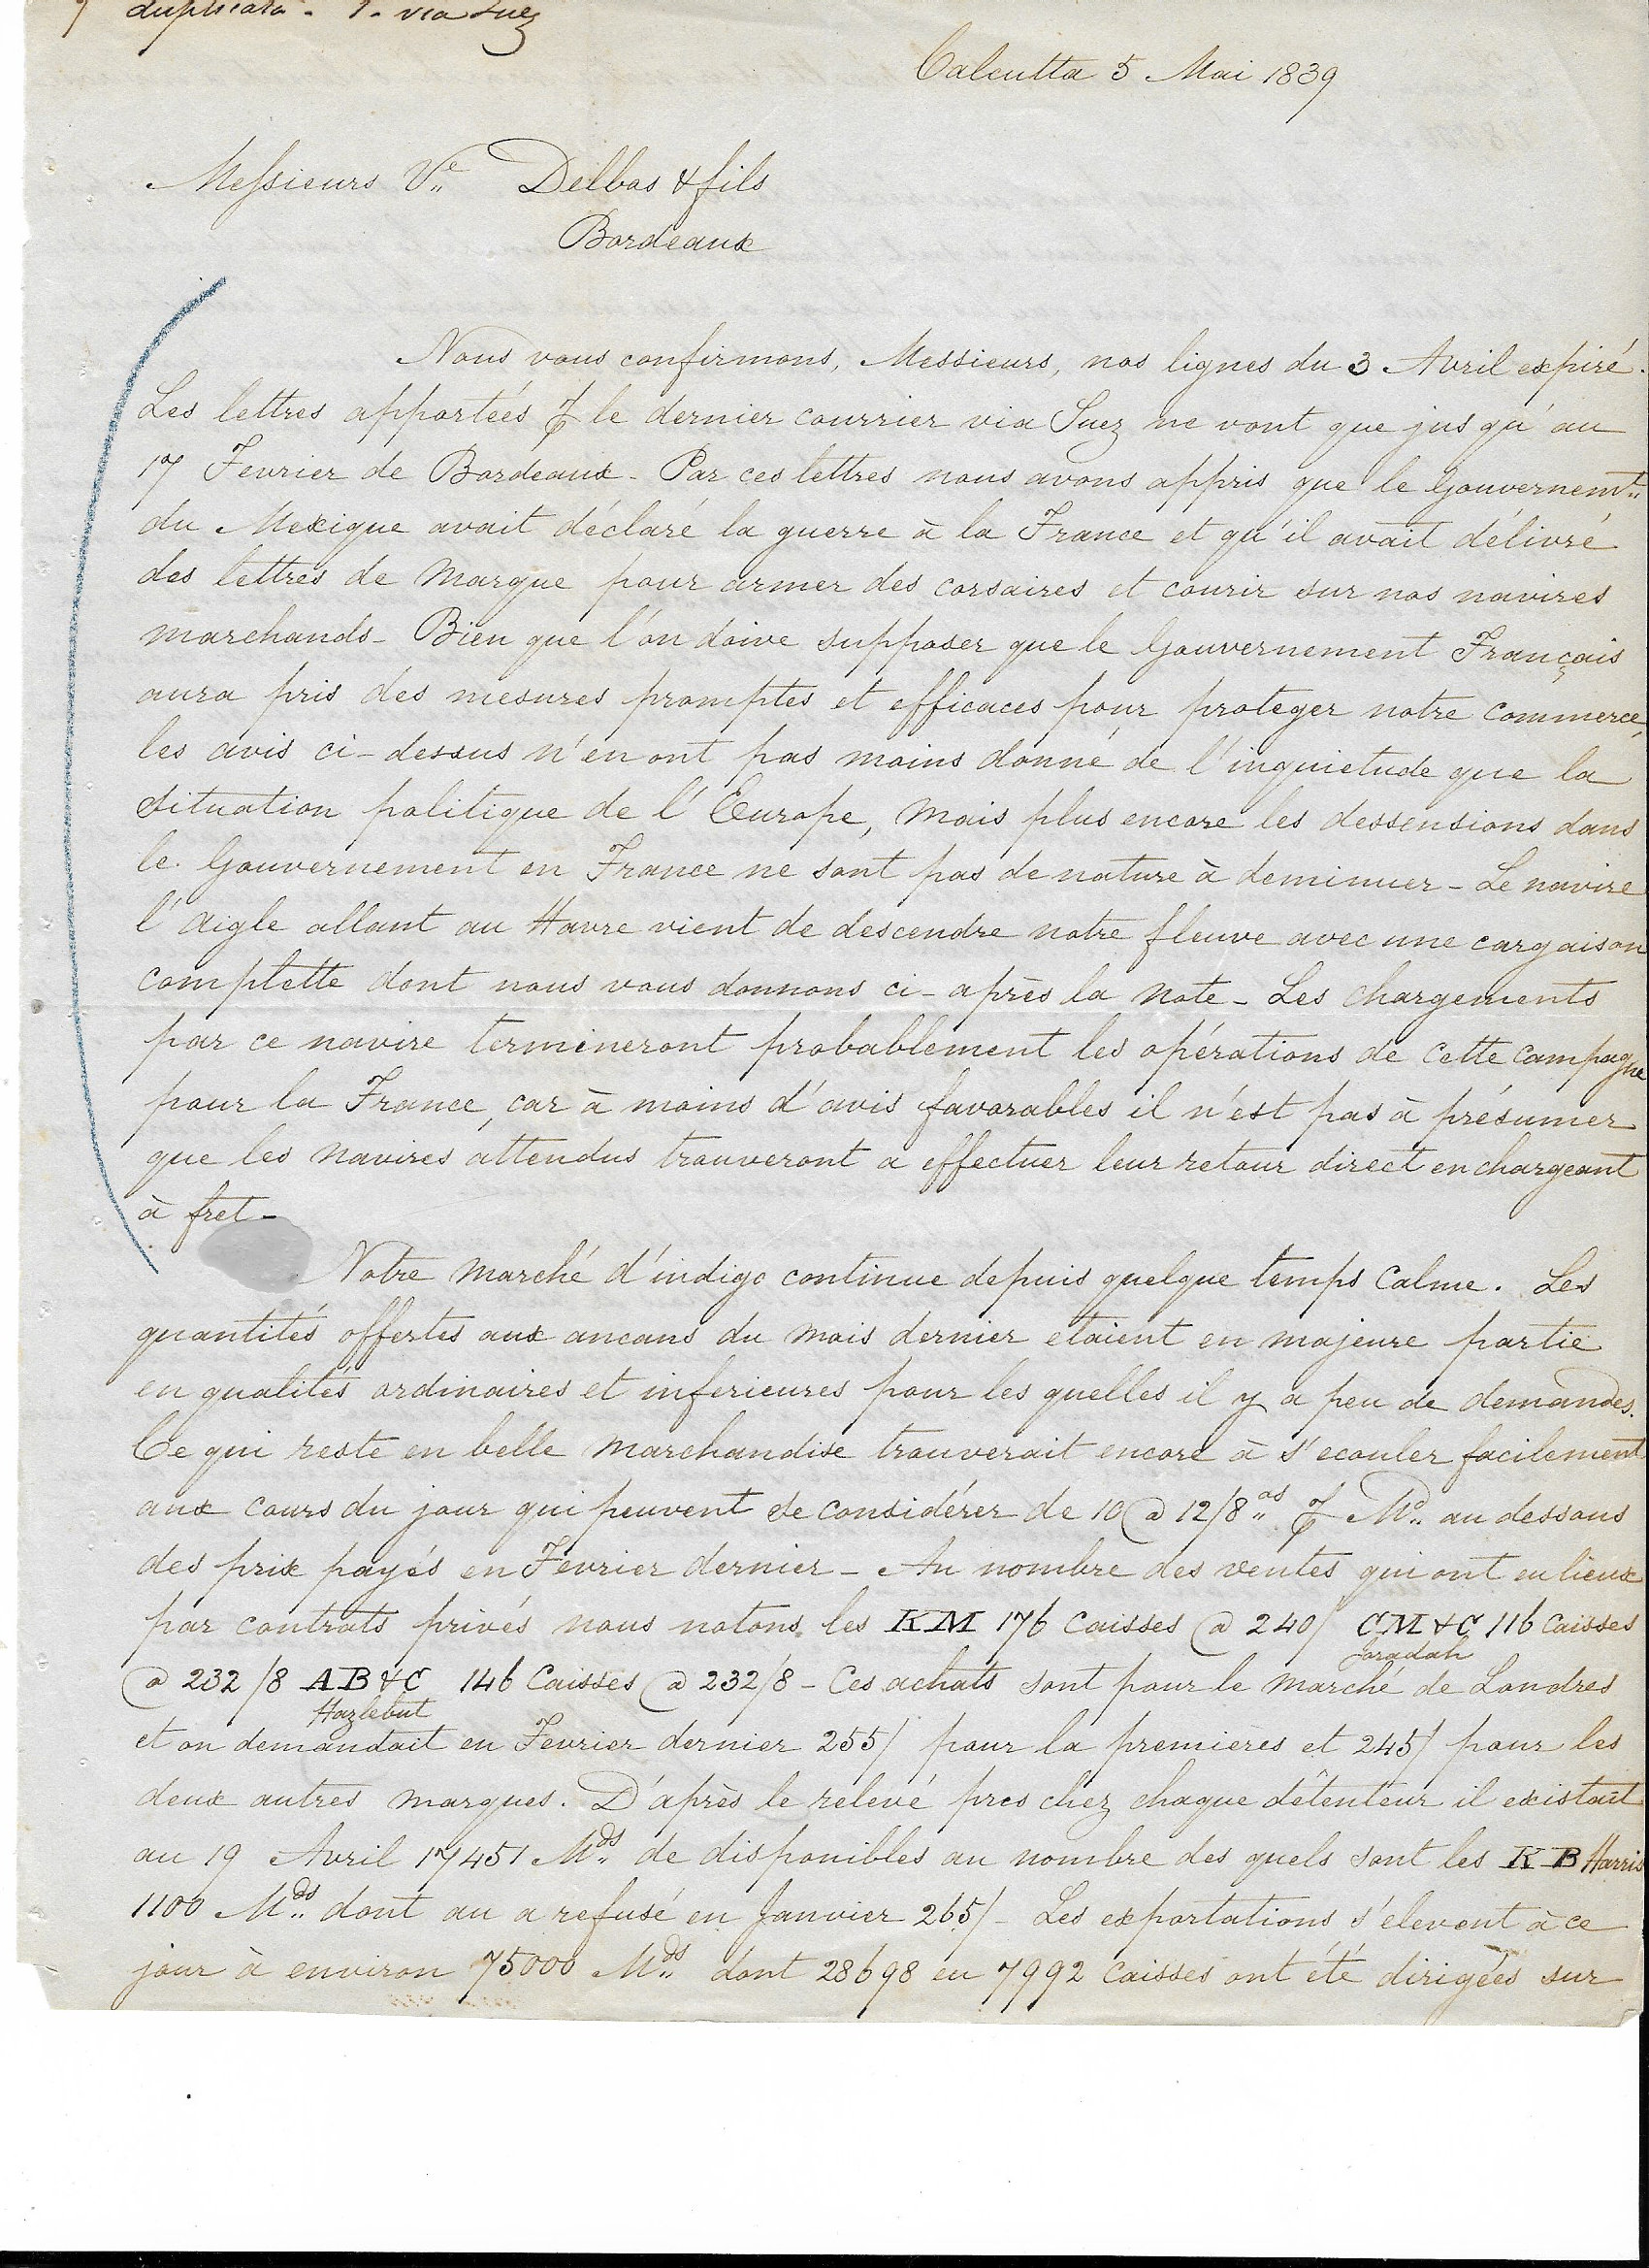 duplicata - 1. via Suez
Calcutta 5 Mai 1839
Messieurs Ve Delbos & fils
Bordeaux
Nous vous confirmons, Messieurs, nos lignes du 3 Avril expiré.
Les lettres apporteés le dernier courrier via Suez ne vont que jusqu'au
17 Fevrier de Bordeaux - Par ces lettres nous avons appris que le Gouvernemt
du Mexique avait déclaré la guerre à la France et qu'il avait délivré
des lettres de Marque pour armer des corsaires et courir sur nos navires
marchands - Bien que l'on doive supposer que le Gouvernement Français
aura pris des mesures promptes et efficaces pour proteger notre commerce,
les avis ci-dessus n'en ont pas moins donné de l'inquietude que la
situation politique de l'Europe, mais plus encore les dessensions dans
le Gouvernement en France ne sont pas de nature à deminuer - Le navire
l'Aigle allant au Havre vient de descendre notre fleuve avec une cargaison
complette dont nous vous donnons ci-après la note - Les chargements
par ce navire termineront probablement les opérations de cette campagne
pour la France, car à moins d'avis favorables il n'est pas à présumer
que les navires attendus trouveront a effectuer leur retour direct en chargeant
à fret -
Notre marché d'indigo continue depuis quelque temps calme. Les
quantités offertes aux encans du mois dernier etaient en majeure partie
en qualités ordinaires et inferieures pour les quelles il y a peu de demandes.
Ce qui reste en belle marchandise trouverait encore à s'ecouler facilement
aux cours du jour qui peuvent se considérer de 10 @ 12/8as Md au dessous
des prix payés en Fevrier dernier - Au nombre des ventes qui ont eu lieux
par contrats privés nous notons les KM 176 Caisses @ 240/ CM & C 116 Caisses
Jaradah
@ 232/8 AB & C 146 Caisses @ 232/8 - Ces achats sont pour le marché de Londres
Hazlebut
et on demandait en Fevrier dernier 255/ pour la premières et 245/ pour les
deux autres marques. D'après le relevé pres chez chaque détenteur il existait
au 19 Avril 17451 Mds de disponibles au nombre des quels sont les KB Harris
1100 Mds dont au a refusé en Janvier 265/ - Les exportations s'elevent à ce
jour à environ 75000 Mds dont 28698 en 7992 caisses ont été dirigées sur